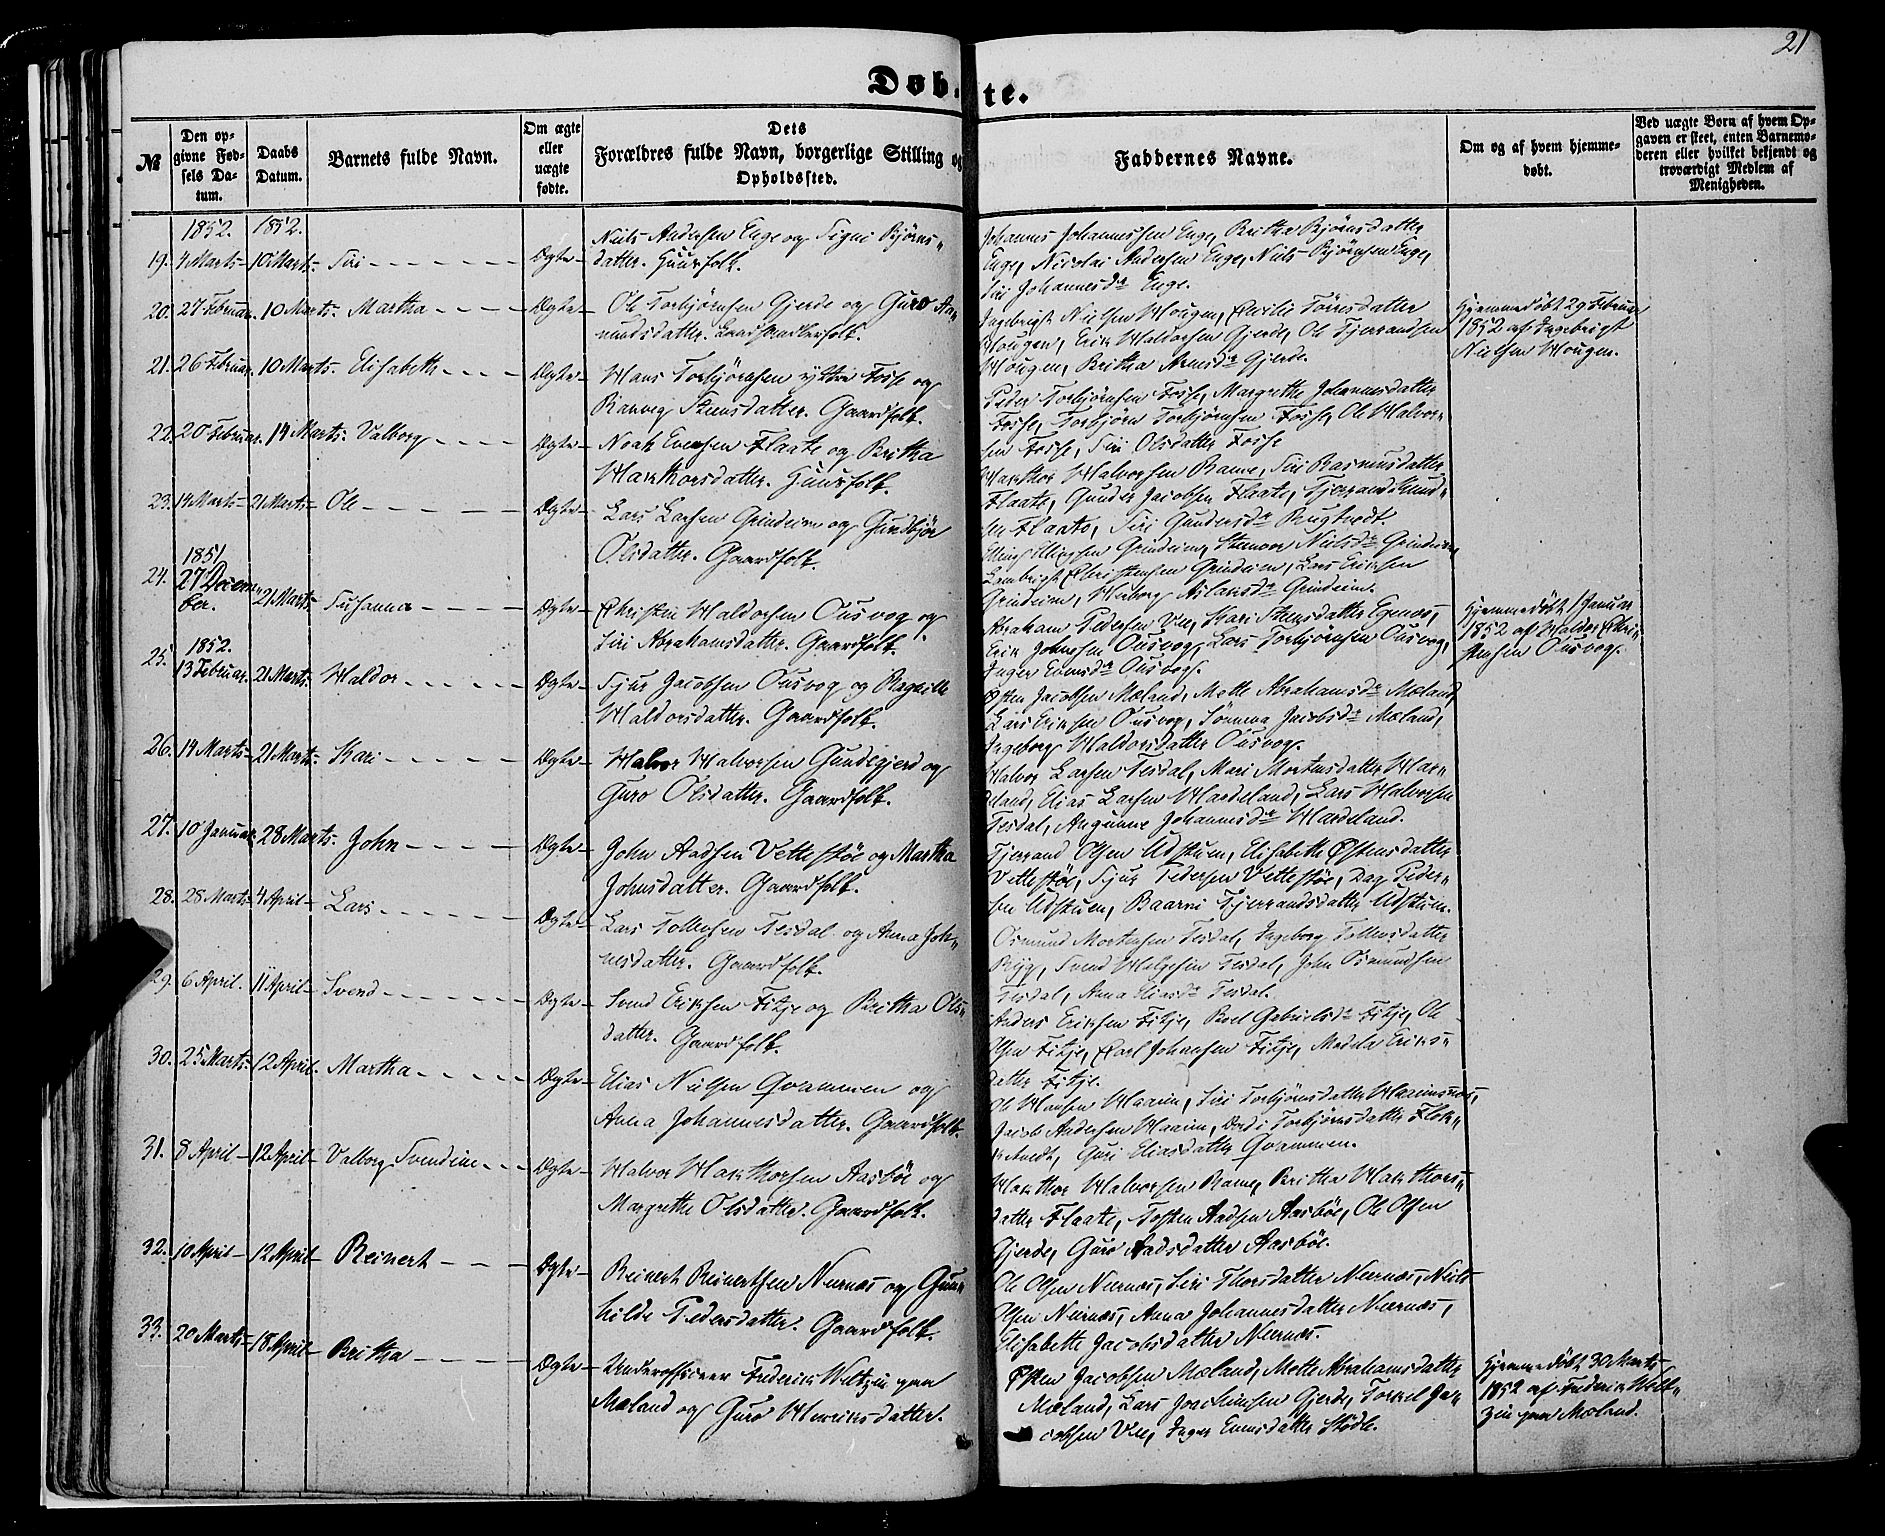 21
Døbte.
№
Den op-
givne Fød-
sels Da-
tum.
Daabs
Datum.
Barnets fulde Navn.
Om ægte
eller
uægte
fødte.
Dets
Forældres fulde Navn, borgerlige Stilling og
Opholdssted.
Faddernes Navne.
Om og af hvem hjemme-
døbt.
Ved uægte Børn af hvem Op-
gaven er skeet, enten Barnemo-
deren eller hvilket bekjendt og
troværdigt Medlem af
Menigheden.
1852. 1852.
19. 4 Marts 10 Marts Siri Ægte
Niels Andersen Enge og Signi Bjørns-
datter. Huusfolk.
Johannes Johannessen Enge, Britha Bjørnsdatter
Enge, Nicolai Andersen Enge, Niels Bjørnsen Enge,
Siri Johannesdr Enge.
20. 27 Februar. 10 Marts. Martha Ægte
Ole Torbjørnsen Gjerde og Guro Aa-
mundsdatter.
Ingebrigt Nielsen Hougen, Tønesdatter
Hougen, Erik Haldorsen Gjerde, Ole Tjerrandsen
Hougen, Britha Gjerde.
Hjemmedøbt 29 Februar
1852 af Ingebrigt
Nielsen Hougen.
21. 26 Februar. 10 Marts. Elisabeth Ægte
Hans Torbjørnsen ytre Fosse og
Ranveg Steensdatter. Gaardfolk.
Peder Torbjørnsen Fosse, Margrethe Johannesdatter
Fosse, Torbjørn Torbjørnsen Fosse, Ole Halvor-
sen Fosse, Siri Olsdatter Fosse
22. 20 Februar. 14 Marts. Valborg Ægte
Noak Evensen Flaate og Britha
Hakthorsdatter. Huusfolk.
Hakthor Halvorsen Rame, Siri Rasmusdatter
Flaate, Gunder Jacobsen Flaate, Tjerrand Knud-
sen Flaate, Siri Gundersdr
23. 14 Marts 21 Marts Ole Ægte
Lars Larsen Grindeim og Gundbjør
Olsdatter. Gaardfolk.
Elling Ellingsen Grindeim, Nielsdr Grindeim,
Lambrigt Christensen Grindeim, Lars Eriksen
Grindeim, Aslaksdr Grindeim.
1851.
24. 27 Decem-
ber. 21 Marts Susanna Ægte
Christen Haldorsen Ousvog og
Siri Abrahamsdatter. Gaardfolk.
Abraham Pedersen Vee, Kari Steensdatter Egenes,
Erik Johnsen Ousvog, Lars Torbjørnsen Ousvog,
Inger Ousvog.
Hjemmedøbt 1 Januar
1852 af Haldor Chri-
stensen Ousvog.
1852.
25. 13 Februar. 21 Marts. Haldor Ægte
Sjur Jacobsen Ousvog og Ragnille
Haldorsdatter. Gaardfolk.
Østen Jacobsen Mæland, Mette Abrahamsdr Mæland,
Lars Eriksen Ousvog, Sønneva Jacobsdr Mæland,
Ingeborg Haldorsdatter Ousvog.
26. 14 Marts 21 Marts Kari Ægte
Halvor Halvorsen Gundegjerd og
Guro Olsdatter. Gaardfolk.
Halvor Larsen Tesdal, Mari Mortensdatter Har-
deland, Elias Larsen Hardeland, Lars Halvorsen
Tesdal, Johannesdr Hardeland.
27. 10 Januar. 28 Marts. John Ægte
John Aadsen Vettestøe og Martha
Johnsdatter. Gaardfolk.
Tjerrand Olsen Udstuen, Elisabeth Østensdatter
Vettestøe, Sjur Pedersen Vettestøe, Dag Peder-
sen Udstuen, Baarni Tjerrandsdatter Udstuen.
28. 28 Marts 4 April Lars Ægte
Lars Tollefsen Tesdal og Anna Joh-
nesdatter. Gaardfolk.
Osmund Mortensen Tesdal, Ingeborg Tollefsdatter
Ryg, Svend Helgesen Tesdal, John Osmundsen
Tesdal, Anna Eliasdr Tesdal.
29. 6 April. 11 April Svend Ægte
Svend Eriksen Fitje og Britha Ols-
datter. Gaardfolk.
Anders Eriksen Fitje, Boel Gabrielsdr Fitje, Ole
Olsen Fitje, Carl Johansen Fitje, Madele Eriks-
datter Fitje.
30. 25 Marts 12 April. Martha Ægte
Elias Nielsen Qvammen og
Anna Johannesdatter. Gaardfolk.
Ole Hansen Haaim, Siri Torbjørnsdatter
Jacob Andersen Haaim, Torbjørnsdatter
Guri Eliasdatter Qvammen.
31. 8 April 12 April Valborg Svendine Ægte
Halvor Hakthorsen Aasbøe og
Margrethe Olsdatter. Gaardfolk.
Hakthor Halvorsen Rame, Britha Hakthors-
datter Flaate, Aadsen Aasbøe, Ole Olsen
Gjerde, Guro Aadsdatter Aasbøe.
32. 10 April 12 April Reinert Ægte
Reinert Reinertsen Neernæs og Gun-
hilde Pedersdatter. Gaardfolk.
Ole Olsen Neernæs, Siri Thorsdatter Neernæs, Niels
Olsen Neernæs, Anna Johannesdatter Neernæs,
Elisabeth Jacobsdatter Neernæs.
33. 20 Marts 18 April Britha Ægte
Underofficeer Frederik Weltzin paa
Mæland og Guro Henriksdatter.
Østen Jacobsen Mæland, Mette Abrahamsdatter
Mæland, Lars Joachimsen Gjerde, Torkel Ja-
cobsen Vee, Inger Stødle.
Hjemmedøbt 30 Marts
1852 af Frederik Welt-
zin paa Mæland.